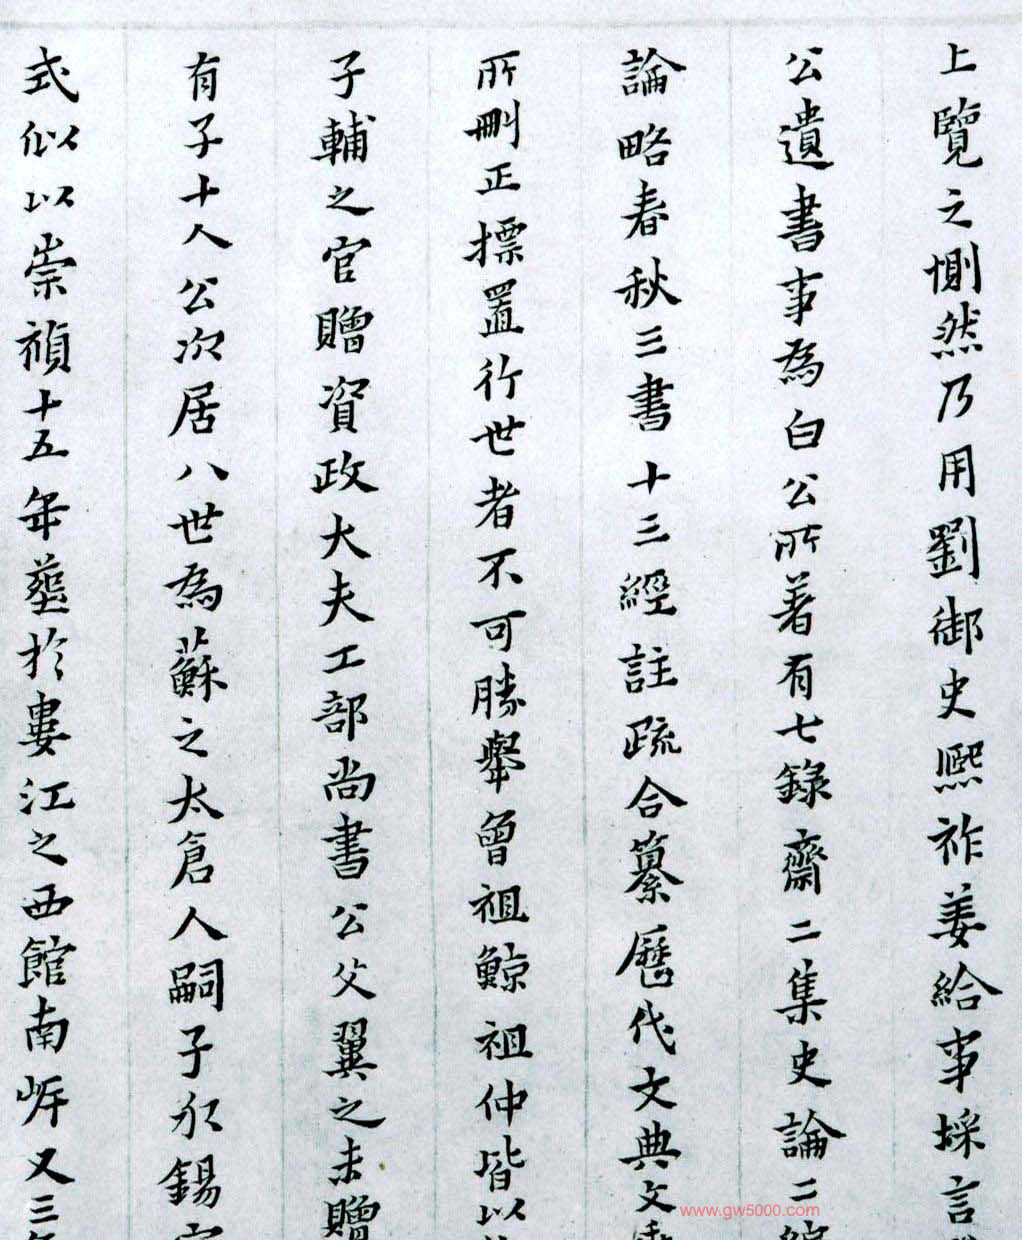 上覽之惻然乃用劉御史熈祚姜給事埰言
公遺書事為白公所著有七錄齋二集史論二編
論略春秋三書十三經註疏合纂曆代文典文
所刪正摽置行世者不可勝舉曾祖鯨祖仲皆以
子輔之官贈資政大夫工部尚書公父翼之未贈
有子十人公次居八世為蘇之太倉人嗣子永錫
式似以崇禎十五年葬於婁江之西館南岸又三
www.gw5000.com